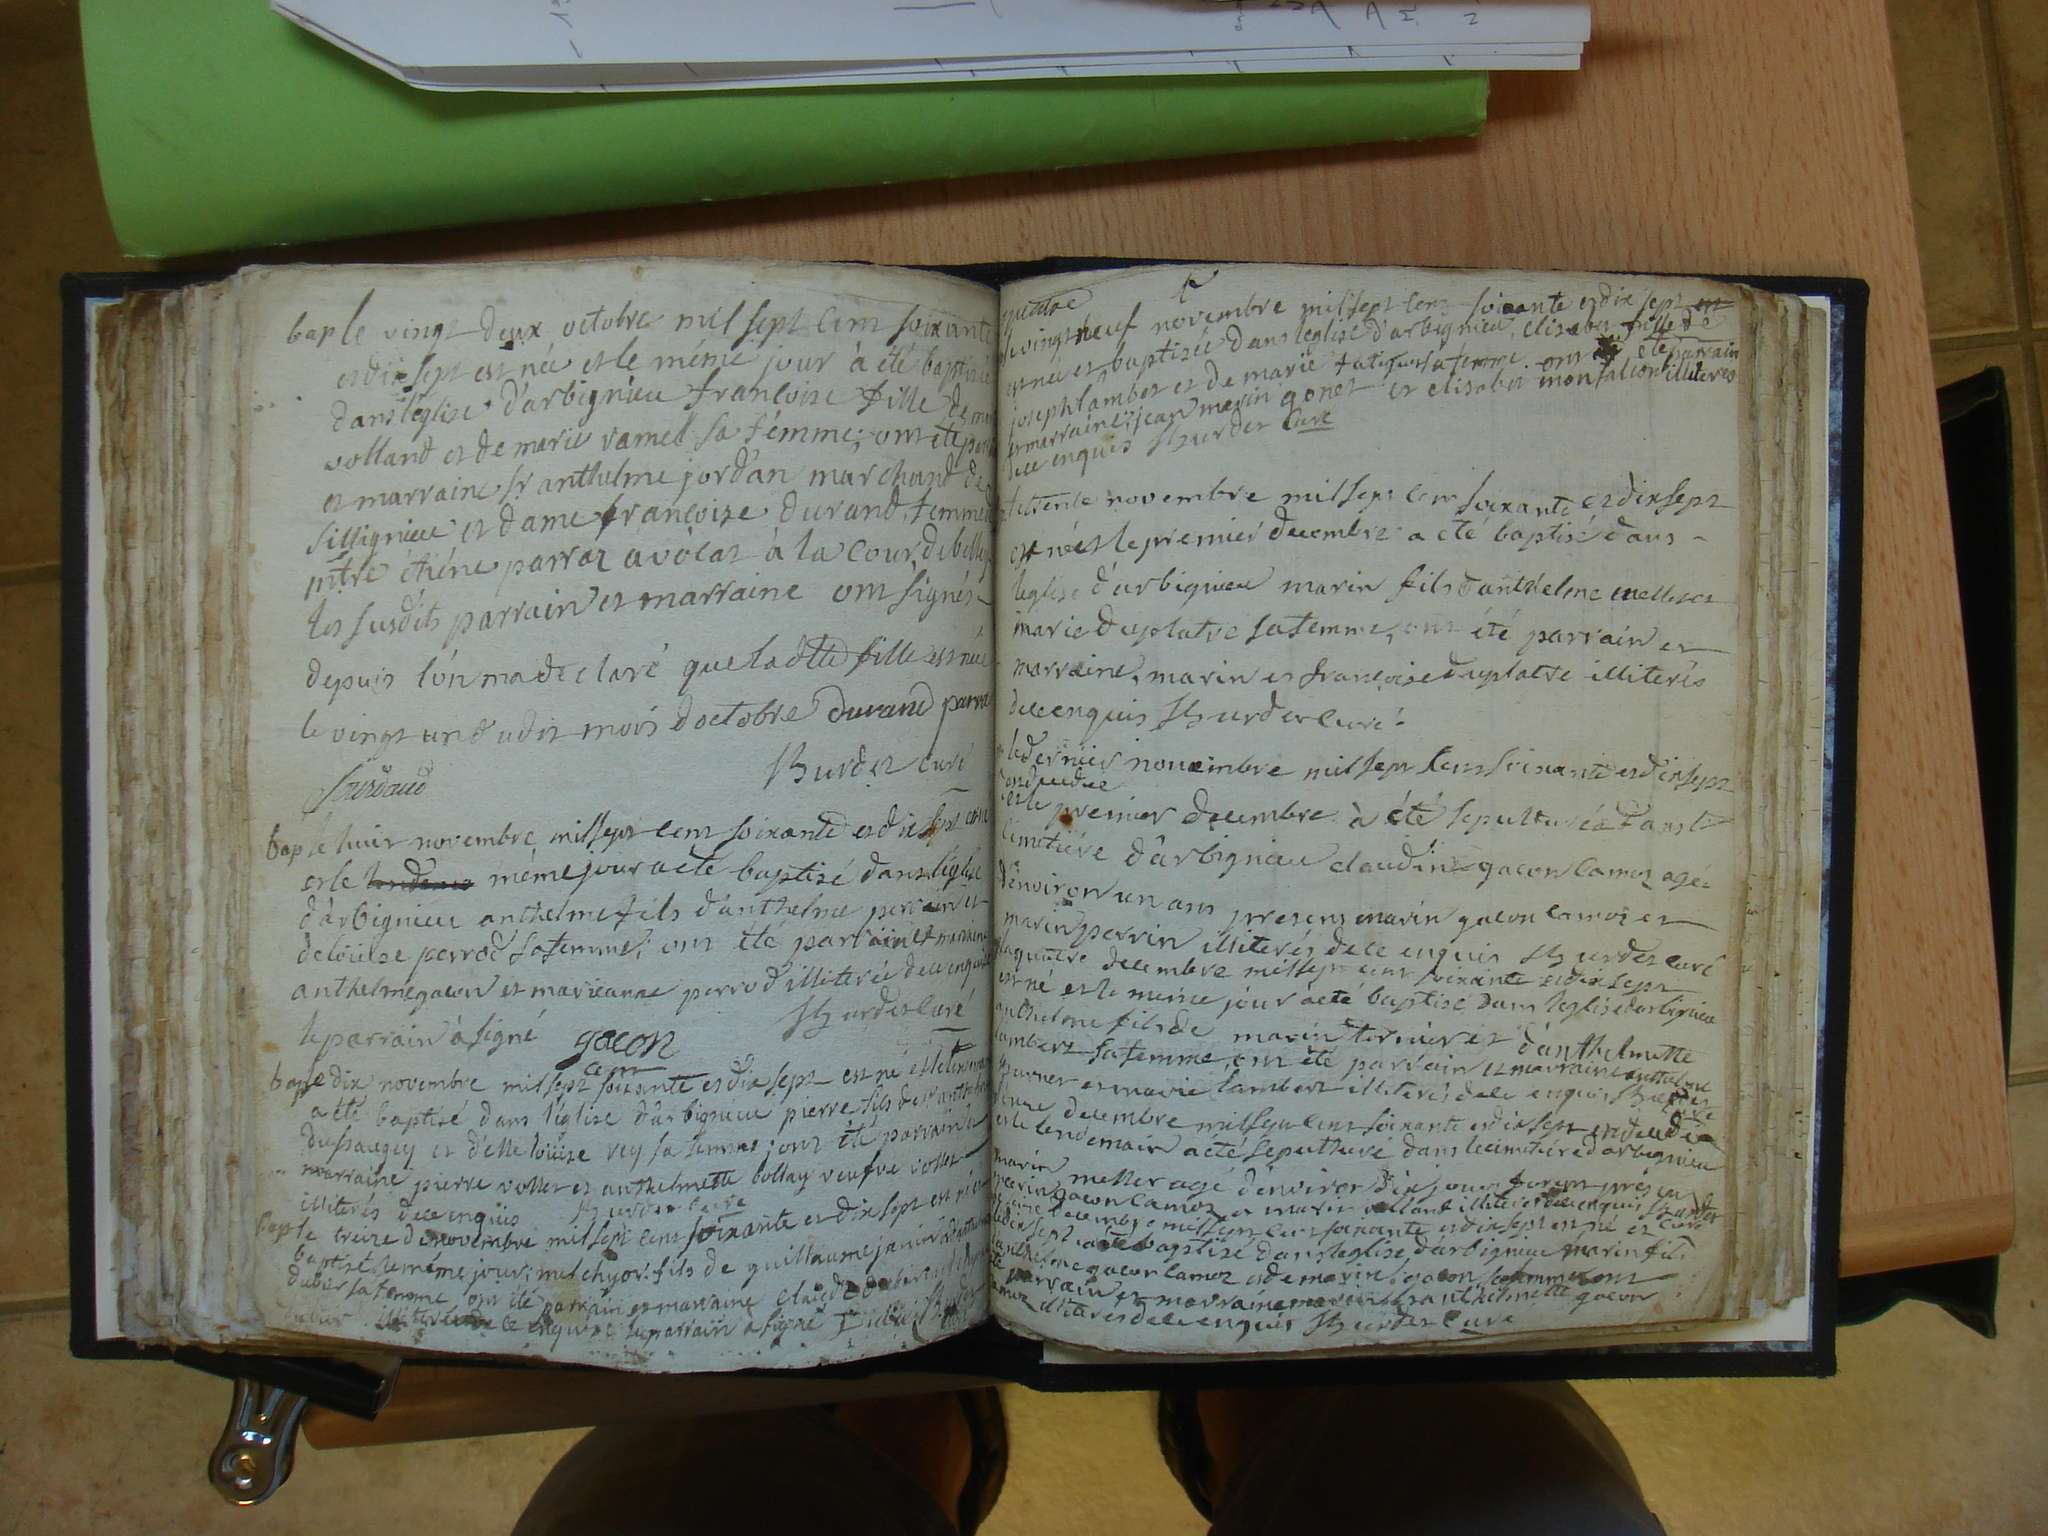 bap le vingt deux octobre mil sept cent soixante
et dix sept est née et le même jour à été baptisée
dans l'eglise d'arbignieu françoise fille de
volland et de marie ramel sa femme; ont été
et marraine sr anthelme jordan marchand de
sillignieu et dame françoise durand femme
mtre étiéne parraz avocat à la cour de belley
les susdits parrain et marraine ont signés
depuis l'on m'a declaré que la dtte fille est née
le vingt un du dit mois d'octobre durand parra
Burdet curé
bap le huit novembre mil sept cent soixante et dix sept est né
et le même jour a été baptisé dans l'église
d'arbignieu anthelme fils d'anthelme perrin et
de loüise perrod sa femme; ont été parrain et marraine
anthelme gacon et marieanne perrod illiterée de ce enquise
le parrain à signé gacon Burdet Curé
bap le dix novembre mil sept cent soixante et dix sept est né et le lendemain
a été baptisé dans l'église d'arbignieu pierre fils de sr anthelme
dussaugey et d'elle loüise rey sa femme; ont été parrain et
marraine pierre vollet et anthelmette bollay veufve vollet
illiterés de ce enquis Burdet curé
bap le treize de novembre mil sept cent soixante et dix sept est né et
baptisé le même jour; melchyor fils de guillaume janin
dubur sa femme ont été parrain et marraine claude
illiterée de ce enquise le parrain a signé
quatre
le vingt neuf novembre mil sept cent soixante et dix sept est
est née et baptisée dans l'eglise d'arbignieu, elisabet fille de
joseph lambert et de marie sa femme ont été parrain
et marraine; jean marin gonet et elisabet monfalcon illiterés
de ce enquis Burdet Curé
le trente novembre mil sept cent soixante et dix sept
est né et le premier decembre a été baptisé dans
l'eglise d'arbignieu marin fils d'anthelme mellet et
marie duplatre sa femme, ont été parrain et
marraine, marin et françoise duplatre illiterés
de ce enquis Burdet curé
le dernier novembre mil sept cent soixante et dix sept
est decedée
et le premier decembre à été sepulturée dans le
cimetiére d'arbignieu claudine gacon camoz agée
d'environ un an presens marin gacon camoz et
marin perrin illiterés de ce enquis Burdet curé
le quatre decembre mil sept cent soixante et dix sept
est né et le même jour a eté baptisé dans l'eglise d'arbignieu
anthelme fils de marin tornier et d'anthelmette
lambert sa femme, ont été parrain et marraine anthelme
et marie lambert illiterés de ce enquis Burdet
curé
decembre mil sept cent soixante et dix sept est decedé
et le lendemain a été sepulturé dans le cimetiére d'arbignieu
marin mellet agé d'environ dix jours furent présens
marin gacon camoz et marin volland illiterés de ce enquis Burdet
decembre mil sept cent soixante et dix sept est né et curé
le dix sept a été baptisé dans l'eglise d'arbignieu marin fils
d'anthelme gacon camoz et de marie gacon sa femme ont
été parrain et marraine marin et anthelmette gacon
camoz illiterés de ce enquis Burdet Curé